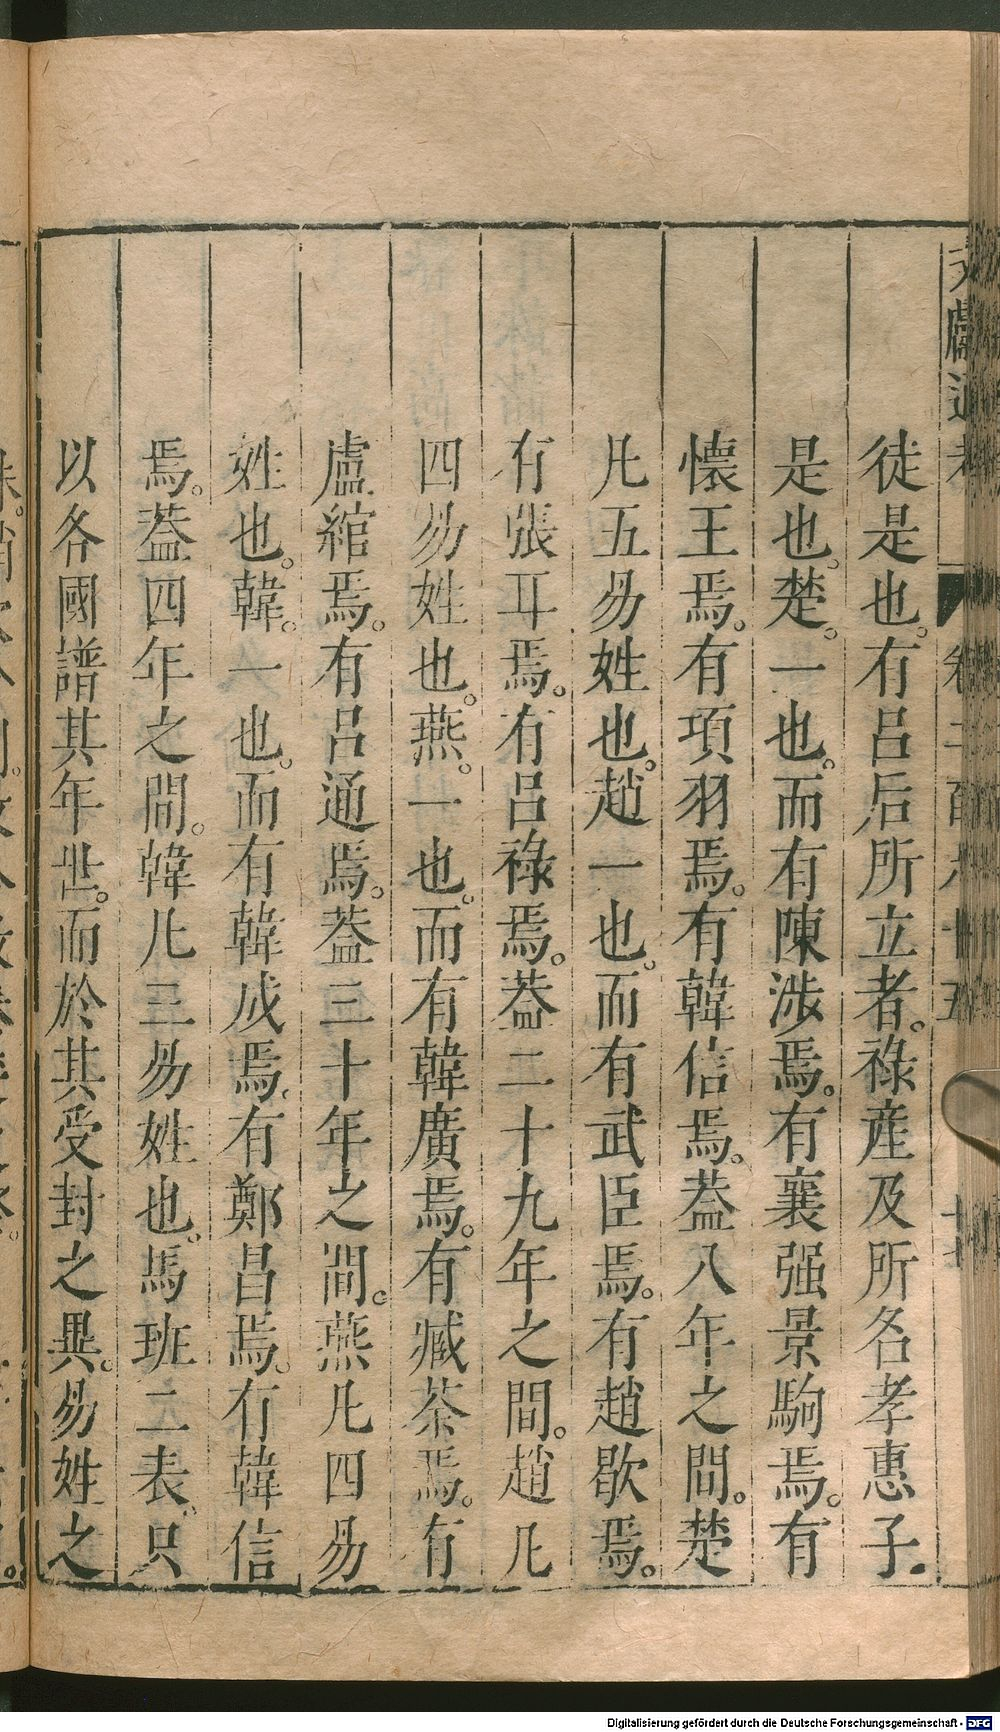 徒是也。有呂后所立者。祿產及所名孝惠子。
是也。楚。一也。而有陳涉焉。有襄强景駒焉。有
懷王焉。有項羽焉。有韓信焉。葢八年之間。楚
凡五易姓也。趙一也。而有武臣焉。有趙歇焉。
有張耳焉。有呂祿焉。葢二十九年之間。趙凡
四易姓也。燕。一也。而有韓廣焉。有臧荼焉。有
盧綰焉。有呂通焉。葢三十年之間。燕凡四易
姓也。韓。一也。而有韓成焉。有鄭昌焉。有韓信
焉。葢四年之間。韓凡三易姓也。馬班二表。只
以各國譜其年世。而於其受封之異。易姓之
Digitalisierung gefördert durch die Deutsche Forschungsgemeinschaft - DFG